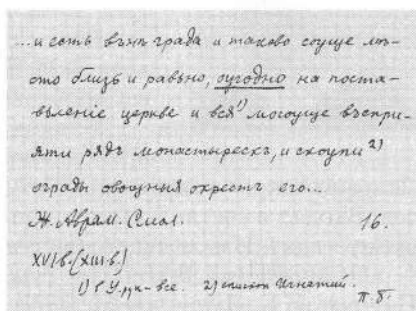 ...и есть вънъ града и таково соуще мѣ-
сто близь и равьно, оугодно на поста-
вьленіе церкве и вся¹⁾ могоуще въспри-
яти рядъ монастырескъ, и скоупи²⁾
ограды овощныя окрестъ его...
Ж. Аврам. Смол. 16.
XVI в. (XIII в.)
1) в У.рук-все. 2) епископ Игнатий.
П.Б.